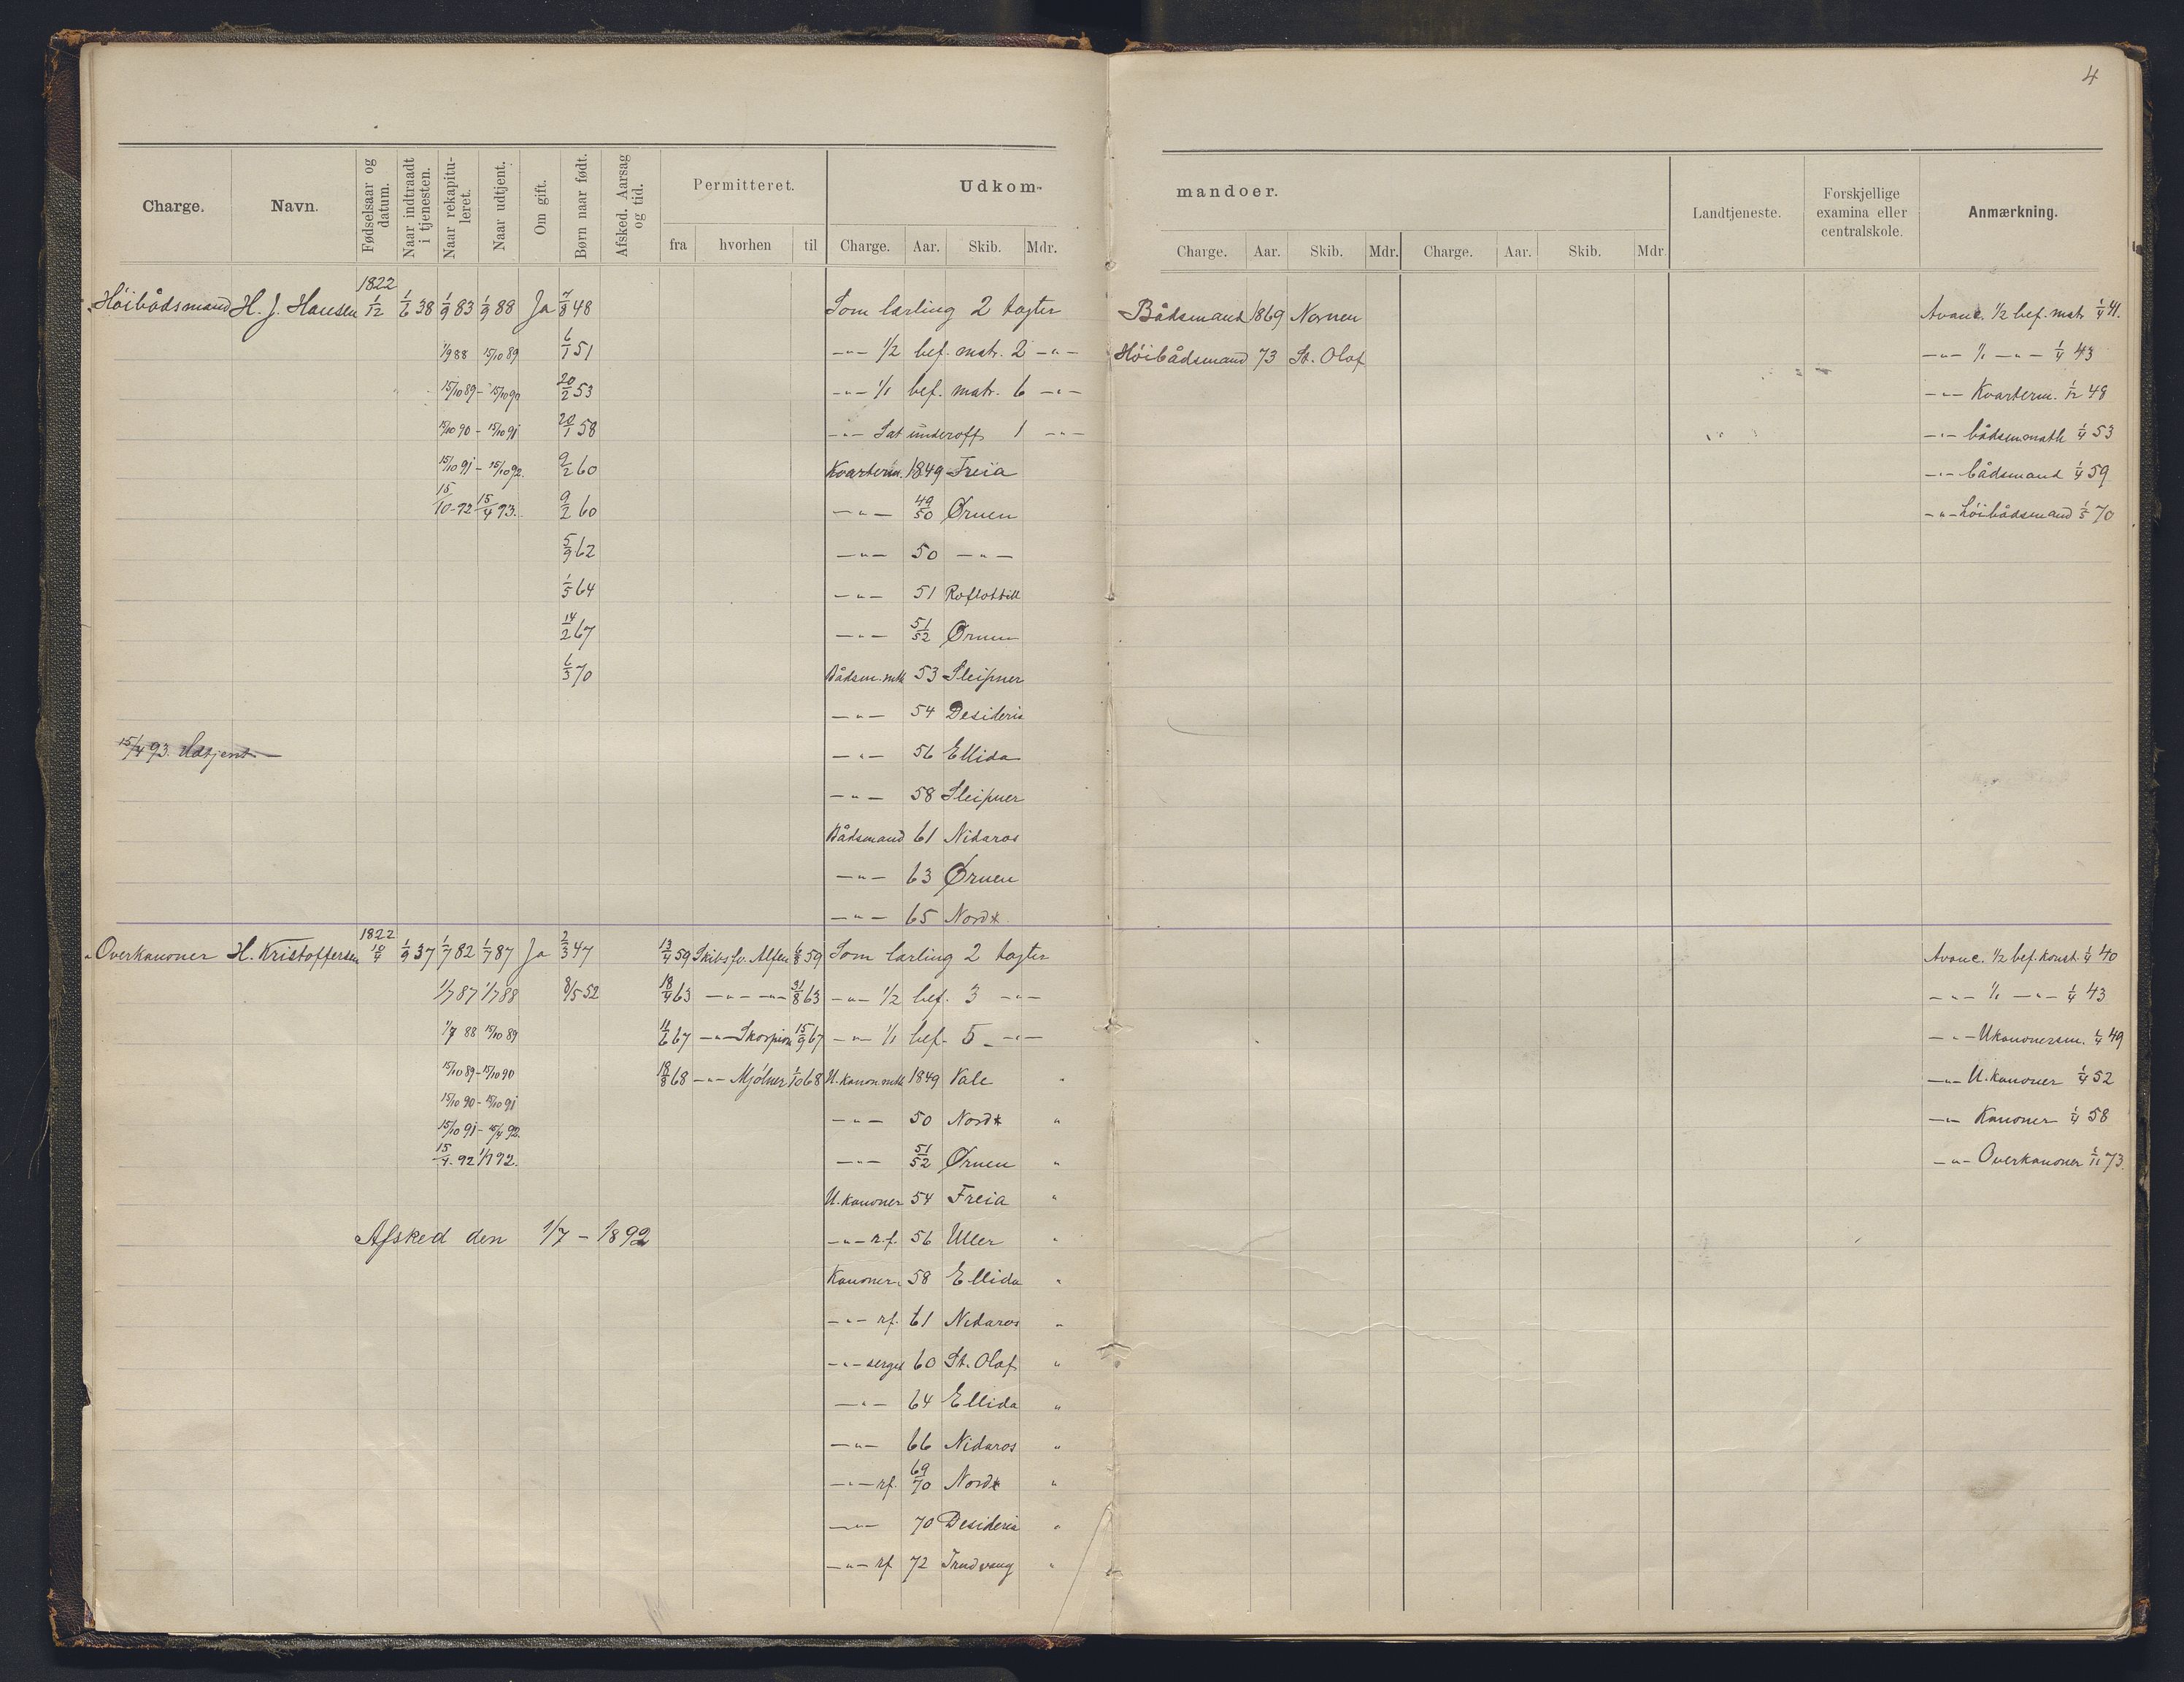 4
Charge. Navn. Fødselsaar og datum. Naar indtraadt i tjenesten. Naar rekapituleret. Naar udtjent. Om gift. Børn naar født. Afsked. Aarsag og tid. Permitteret. Udkommandoer. Landtjeneste. Forskjellige examina eller centralskole. Anmærkning.
fra hvorhen til Charge. Aar. Skib. Mdr. Charge. Aar. Skib. Mdr. Charge. Aar. Skib. Mdr.
1822
Höibådsmand H. J. Hansen 1/12 1/6 38 1/9 83 1/9 88 Ja 7/8 48 Som lærling 2 togter Bådsmand 1869 Nornen Avanc. 1/2 bef. matr 1/4 41.
1/9 88 15/10 89 6/1 51 -"- 1/2 bef. matr. 2 -"- Höibådsmand 73 St. Olaf -"- 1/1 -"- 1/4 43
15/10 89 - 15/10 90 20/2 53 -"- 1/1 bef. matr. 6 -"- -"- Kvarterm. 1/12 48
15/10 90 - 15/10 91 20/1 58 -"- underoff. 1 -"- -"- bådsmmath 1/4 53
15/10 91 - 15/10 92. 9/2 60 Kvarterm. 1849 Freia -"- bådsmand 1/4 59
15/10-92 15/4 93. 9/2 60 -"- 49/50 Ørnen -"- höibådsmand 1/5 70
5/9 62 -"- 50 -"-
1/5 64 -"- 51 Roflottill
14/2 67 -"- 51/52 Ørnen
6/3 70 Bådsm. mth 53 Sleipner
-"- 54 Desideria
15/4 93. Udtjent - -"- 56 Ellida
-"- 58 Sleipner
Bådsmand 61 Nidaros
-"- 63 Ørnen
-"- 65 Nord*
1822
Overkanoner H. Kristoffersen 10/4 1/9 37 1/7 82 1/7 87 Ja 2/3 47 13/4 59 Skibsfv. Alfen 6/8 59 Som lærling 2 togter Avanc. 1/2 bef. konst. 1/4 40
1/7 87 1/7 88 8/5 52 18/4 63 -"- -"- 31/8 63 -"- 1/2 bef. 3 -"- -"- 1/1 -"- 1/4 43
1/7 88 15/10 89 11/6 67 -"- Skorpion 15/9 67 -"- 1/1 bef. 5 -"- -"- Ukanonersm. 1/4 49
15/10 89 - 15/10 90 18/8 68 -"- Mjölner 1/10 68 U. kanon mth 1849 Vale " -"- U. kanoner 1/4 52
15/10 90 - 15/10 91 -"- 50 Nord* " -"- Kanoner 1/4 58
15/10 91 - 15/4 92.
15/4-92 1/7 92. -"- 51/52 Ørnen " -"- Overkanoner 1/11 73.
U. kanoner 54 Freia "
Afsked den 1/7 - 1892 -"- r.f. 56 Uller "
Kanoner 58 Ellida "
-"- rf. 61 Nidaros "
-"- 60 St. Olaf "
-"- 64 Ellida "
-"- 66 Nidaros "
-"- rf. 69/70 Nord* "
-"- 70 Desideria "
-"- rf 72 Trudvang "